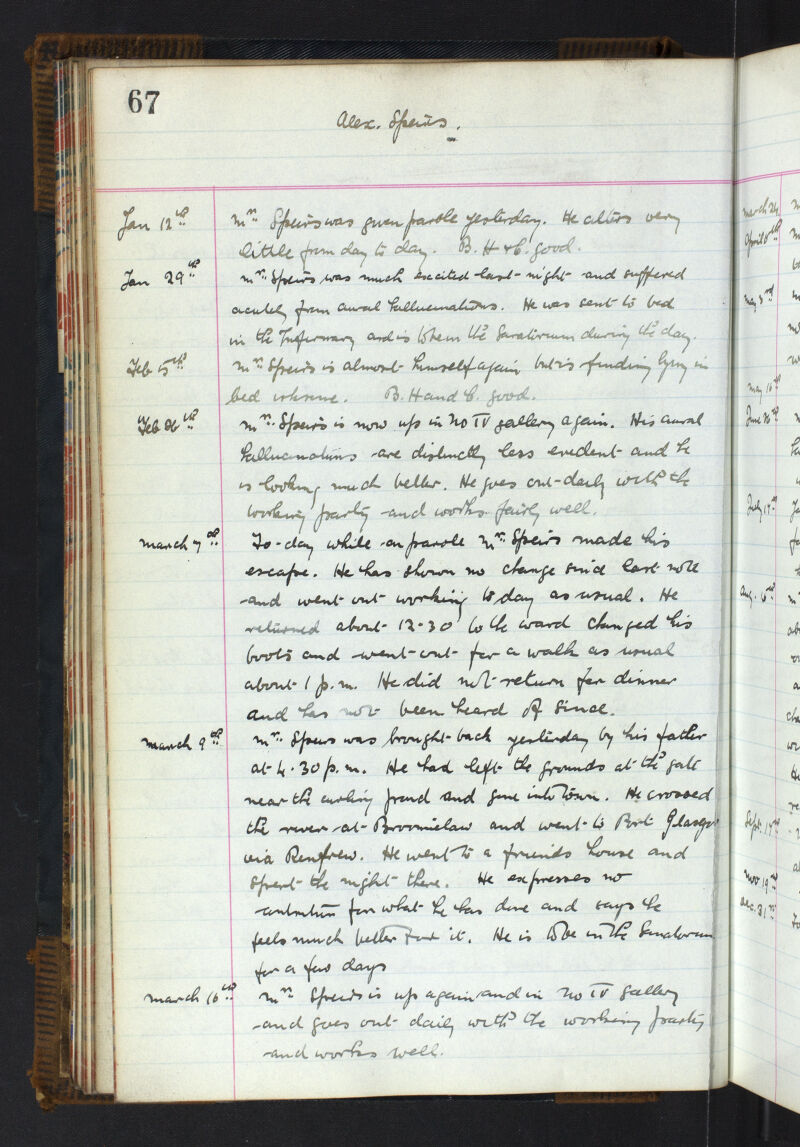 67
Alex. Speirs.
Jan 12th Mr. Speirs was given parole yesterday. He alters very
little from day to day. B. H & C. good.
Jan 29th Mr. Speirs was much excited last night and suffered
acutely from aural hallucinations. He was sent to bed
in the Infirmary and is to be in the Sanatorium during the day.
Feb 5th Mr. Speirs is almost himself again but is finding lying in
bed irksome. B. H and C. good.
Feb 26th Mr. Speirs is now up in No IV gallery again. His aural
hallucinations are distinctly less evident and he
is looking much better. He goes out daily with the
working party and works fairly well.
March 7th To-day while on parole Mr. Speirs made his
escape. He has shown no change since last note
and went out working to day as usual. He
returned about 12-30 to the ward changed his
boots and went out for a walk as usual
about 1 p.m. He did not return for dinner
and has not been heard of since.
March 9th Mr. Speirs was brought back yesterday by his father
at 4.30 p.m. He had left the grounds at the gate
near the curling pond and gone into town. He crossed
the river at Broomielaw and went to Port Glasgow
via Renfrew. He went to a friends house and
spent the night there. He expresses no
contrition for what he has done and says he
feels much better for it. He is to be in the Sanatorium
for a few days
March 16th Mr. Speirs is up again and in No IV gallery
and goes out daily with the working party
and works well.
March 24
April 8th
May 3rd
May 16th
June 26th
July 17th
Aug. 6th
Sept. 17th
Nov 19th
Dec. 31st